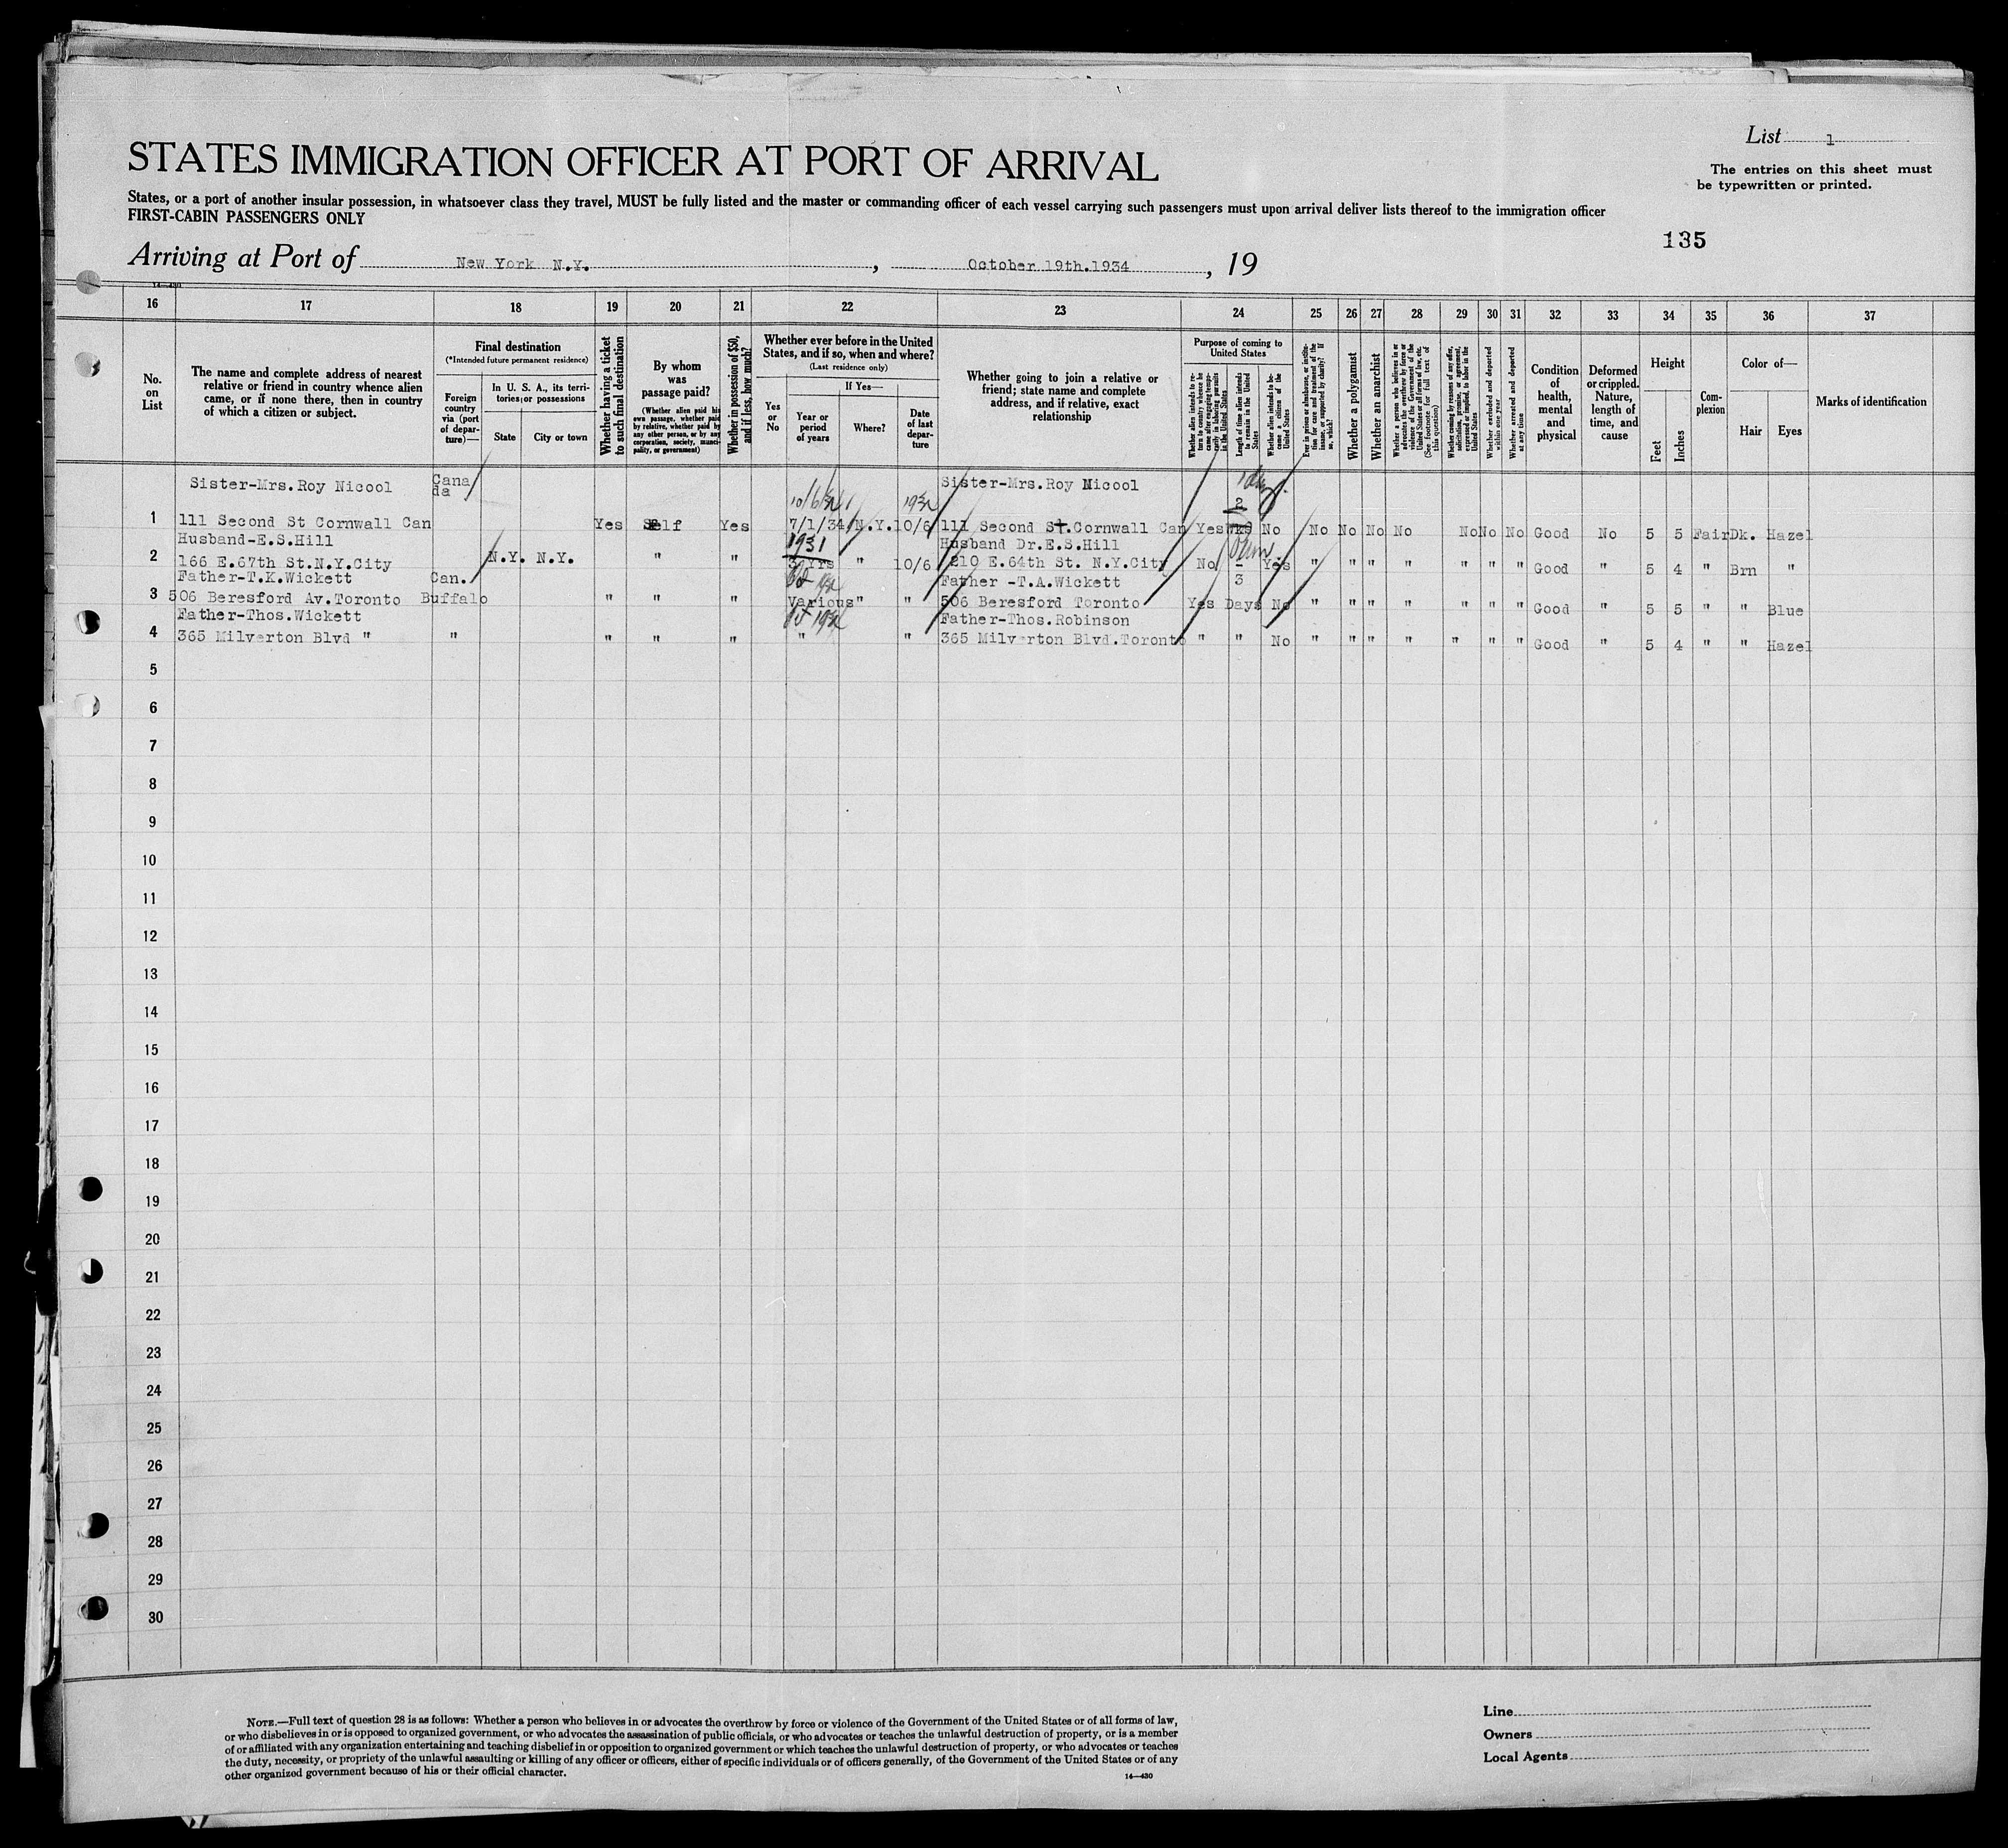 List 1
STATES IMMIGRATION OFFICER AT PORT OF ARRIVAL
The entries on this sheet must
be typewritten or printed.
States, or a port of another insular possession, in whatsoever class they travel, MUST be fully listed and the master or commanding officer of each vessel carrying such passengers must upon arrival deliver lists thereof to the immigration officer
FIRST-CABIN PASSENGERS ONLY
135
Arriving at Port of New York N.Y. , October 19th.1934 , 19
14—430
16 17 18 19 20 21 22 23 24 25 26 27 28 29 30 31 32 33 34 35 36 37
No.
on
List
The name and complete address of nearest
relative or friend in country whence alien
came, or if none there, then in country
of which a citizen or subject.
Final destination
(*Intended future permanent residence)
Foreign
country
via (port
of depar-
ture)—
In U. S. A., its terri-
tories or possessions
State City or town
Whether having a ticket
to such final destination
By whom
was
passage paid?
(Whether alien paid his
own passage, whether paid
by relative, whether paid by
any other person, or by any
corporation, society, munici-
pality, or government)
Whether in possession of $50,
and if less, how much?
Whether ever before in the United
States, and if so, when and where?
(Last residence only)
Yes
or
No
If Yes—
Year or
period
of years
Where?
Date
of last
depar-
ture
Whether going to join a relative or
friend; state name and complete
address, and if relative, exact
relationship
Purpose of coming to
United States
Whether alien intends to re-
turn to country whence he
came after engaging tempo-
rarily in laboring pursuits
in the United States
Length of time alien intends
to remain in the United
States
Whether alien intends to be-
come a citizen of the
United States
Ever in prison or almshouse, or institu-
tion for care and treatment of the
insane, or supported by charity? If
so, which?
Whether a polygamist
Whether an anarchist
Whether a person who believes in or
advocates the overthrow by force or
violence of the Government of the
United States or all forms of law, etc.
(See footnote for full text of
this question)
Whether coming by reasons of any offer,
solicitation, promise, or agreement,
expressed or implied, to labor in the
United States
Whether excluded and deported
within one year
Whether arrested and deported
at any time
Condition
of
health,
mental
and
physical
Deformed
or crippled.
Nature,
length of
time, and
cause
Height
Feet
Inches
Com-
plexion
Color of—
Hair Eyes
Marks of identification
Sister-Mrs.Roy Nicool Cana
da Sister-Mrs.Roy Nicool
10/6/34 1934 2
1 111 Second St Cornwall Can Yes Self Yes 7/1/34 N.Y. 10/6 111 Second St.Cornwall Can Yes wks No No No No No No No No Good No 5 5 Fair Dk. Hazel
Husband-E.S.Hill 1931 Husband Dr.E.S.Hill
2 166 E.67th St.N.Y.City N.Y. N.Y. " " 3 Yrs " 10/6 210 E.64th St. N.Y.City No - Yes " " " " " " " Good " 5 4 " Brn "
Father-T.K.Wickett Can. Father -T.A.Wickett 3
3 506 Beresford Av.Toronto Buffalo " " " Various " " 506 Beresford Toronto Yes Days No " " " " " " " Good " 5 5 " " Blue
Father-Thos.Wickett Father-Thos.Robinson
4 365 Milverton Blvd " " " " " " " 365 Milverton Blvd.Toronto " " No " " " " " " " Good " 5 4 " " Hazel
5
6
7
8
9
10
11
12
13
14
15
16
17
18
19
20
21
22
23
24
25
26
27
28
29
30
NOTE.—Full text of question 28 is as follows: Whether a person who believes in or advocates the overthrow by force or violence of the Government of the United States or of all forms of law,
or who disbelieves in or is opposed to organized government, or who advocates the assassination of public officials, or who advocates or teaches the unlawful destruction of property, or is a member
of or affiliated with any organization entertaining and teaching disbelief in or opposition to organized government or which teaches the unlawful destruction of property, or who advocates or teaches
the duty, necessity, or propriety of the unlawful assaulting or killing of any officer or officers, either of specific individuals or of officers generally, of the Government of the United States or of any
other organized government because of his or their official character.
14—430
Line
Owners
Local Agents